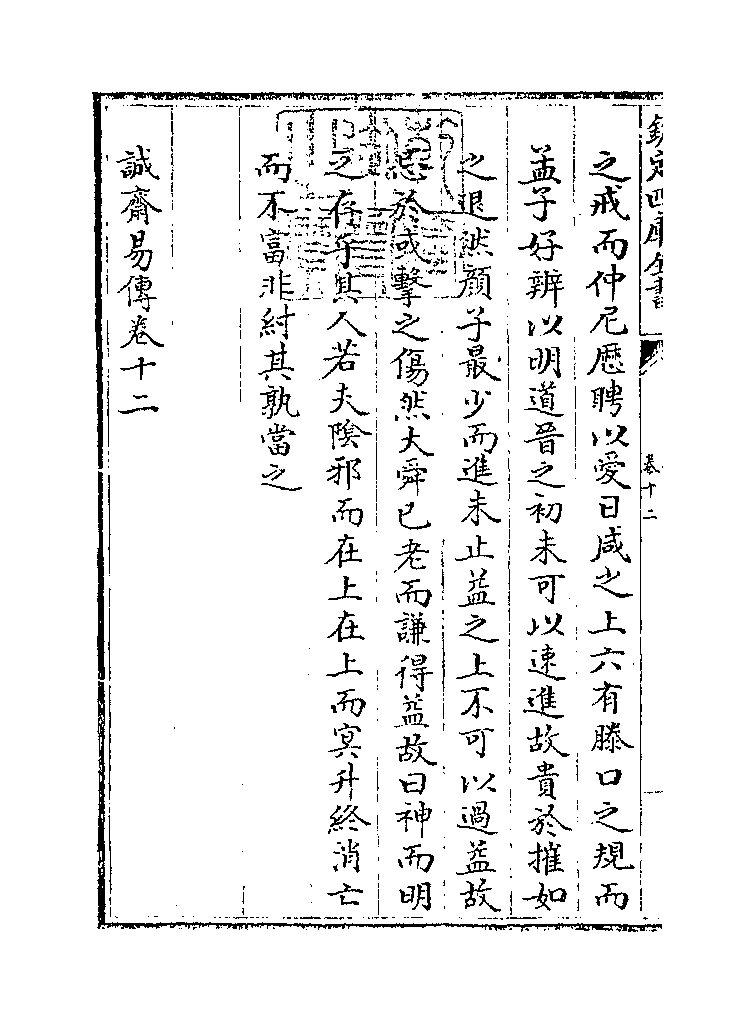 欽定四庫全書
卷十二
之戒而仲尼歴聘以愛日咸之上六有滕口之規而
孟子好辨以明道晉之初未可以速進故貴於摧如
之退然顔子最少而進未止益之上不可以過益故
忌於或擊之傷然大舜已老而謙得益故曰神而明
之存乎其人若夫陰邪而在上在上而冥升終消亡
而不富非紂其孰當之
誠齋易傳卷十二